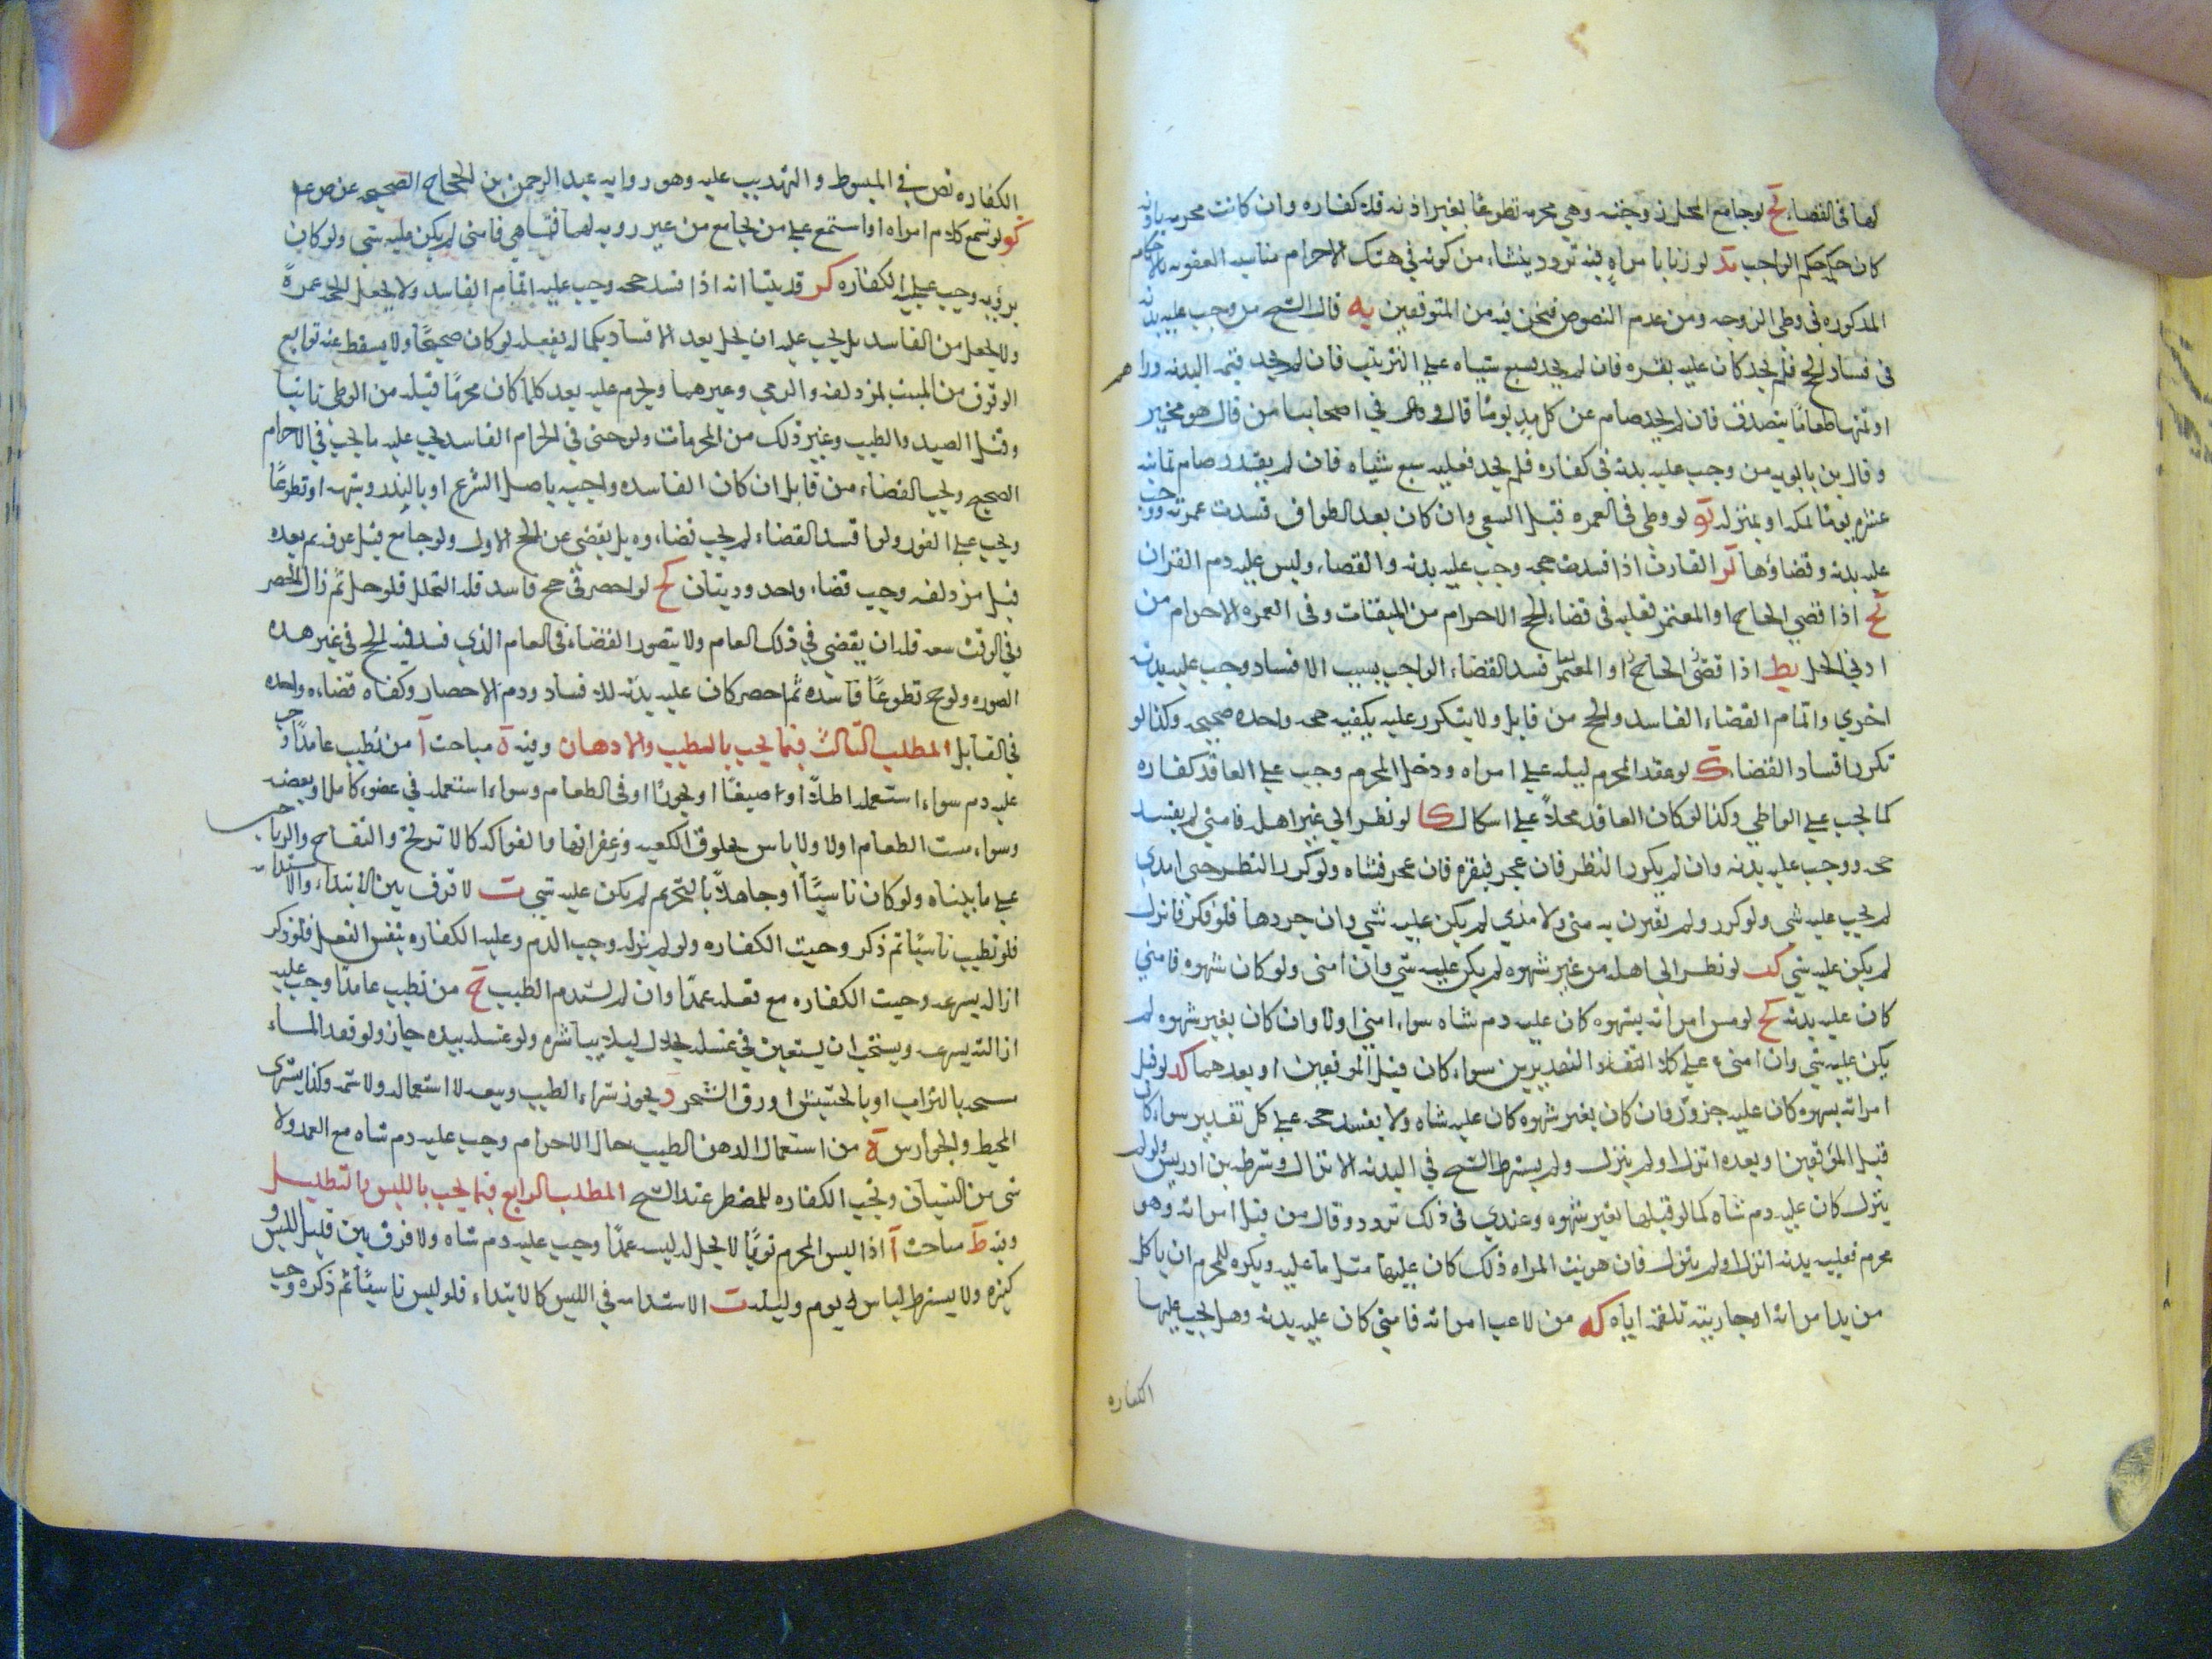 لها فى القضاء يج لو جامع المحل زوجته وهي محرمه تطوعًا بغير اذنه فلا كفاره وان كانت محرمه باذنه
كان حكمه حكم الواجب يد لو زنا بامراه فيه تردد ينشاء من كونه في هتك الاحرام مناسبه العقوبه بالاحكام
المذكوره فى وطي الزوجه ومن عدم النصوص فنحن فيه من المتوقفين يه قال الشيخ من وجب عليه بدنه
فى فساد الحج فلم يجد كان عليه بقره فان لم يجد فسبع شياه على الترتيب فان لم يجد فقيمه البدنه دراهم
او ثمنها طعامًا يتصدق فان لم يجد صام عن كل مد يومًا قال وفي اصحابنا من قال هو مخير
وقال بن بابويه من وجب عليه بدنه في كفاره فلم يجد فعليه سبع شياه فان لم يقدر صام ثمانيه
عشر يومًا بمكه او بمنزله يو لو وطى فى العمره قبل السعي وان كان بعد الطواف فسدت عمرته ووجب
عليه بدنه وقضاؤها يز القارن اذا افسد حجه وجب عليه بدنه والقضاء وليس عليه دم القران
يح اذا قضى الحاج او المعتمر فعليه فى قضاء الحج الاحرام من الميقات وفى العمره الاحرام من
ادني الحل يط اذا قضى الحاج او المعتمر فسد القضاء الواجب بسبب الافساد وجب عليه بدنه
اخري واتمام القضاء الفاسد والحج من قابل ولا يتكرر عليه يكفيه حجه واحده صحيحه وكذا لو
تكرر افساد القضاء ك لو عقد المحرم لمثله على امراه ودخل المحرم وجب على العاقد كفاره
كما يجب على الواطي وكذا لو كان العاقد محلاً على اشكال كا لو نظر الي غير اهله فامني لم يفسد
حجه ووجب عليه بدنه وان لم يكرر النظر فان عجز فبقره فان عجز فشاه ولو كرر النظر حتى امذي
لم يجب عليه شي ولو كرر ولم يقترن به منى ولا مذي لم يكن عليه شي وان جردها فلو فكر فانزل
لم يكن عليه شي كب لو نظر الي اهله من غير شهوه لم يكن عليه شي وان امنى ولو كان شهوه فامني
كان عليه بدنه كج لو مس امراته بشهوه كان عليه دم شاه سواء امنى او لا وان كان بغير شهوه لم
يكن عليه شي وان امنى على كلا التقديرين سواء كان قبل الموقفين او بعدهما كد لو قبل
امراته بشهوه كان عليه جزور فان كان بغير شهوه كان عليه شاه ولا يفسد حجه على كل تقدير سواء كان
قبل الموقفين او بعده انزل او لم ينزل ولم يشترط الشيخ في البدنه الانزال وشرطه بن ادريس ولو لم
ينزل كان عليه دم شاه كما لو قبلها بغير شهوه وعندي فى ذلك تردد وقال من قبل امراته وهو
محرم فعليه بدنه انزل او لم ينزل فان هويت المراه ذلك كان عليها مثل ما عليه ويكره للمحرم ان ياكل
من يد امراته او جاريته تلقمه اياه كه من لاعب امراته فامنى كان عليه بدنه وهل يجب عليها
الكفاره
الكفاره نص في المبسوط والتهذيب عليه وهو روايه عبد الرحمن بن الحجاج الصحيحه عن
كو لو تسمع كلام امراه او استمع على من يجامع من غير رويه لهما فتشاهي فامنى لم يكن عليه شي ولو كان
برؤيه وجب عليه الكفاره كز قد بينا انه اذا افسد حجه وجب عليه اتمام الفاسد ولا يجعل الحجه عمرةً
ولا يحل من الفاسد بل يجب عليه ان يحل بعد الافساد بكما له يفعله لو كان صحيحًا ولا يسقط عنه توابع
الوقوف من المبيت بمزدلفه والرمي وغيرهما ويحرم عليه بعد كلما كان محرمًا قبله من الوطى ثانيا
وقتل الصيد والطيب وغير ذلك من المحرمات ولو جنى في الحرام الفاسد يجب عليه ما يجب في الاحرام
الصحيح ويجب القضاء من قابل ان كان الفاسده واجبه باصل الشرع او بالنذر وشبهه او تطوعًا
ويجب على الفور ولو افسد القضاء لم يجب قضاءوه بل يقضى عن الحج الاول ولو جامع قبل عرفه ثم بعده
قبل مزدلفه وجب قضاء واحد وبدنتان كح لو احصر فى حج فاسد فله التحلل فلو حل ثم زال الحصر
وفى الوقت سعه فله ان يقضي في ذلك العام ولا يتصور القضاء فى العام الذي فسد فيه الحج فى غير هذه
الصوره ولو حج تطوعًا فافسده ثم احصر كان عليه بدنه للافساد ودم الاحصار وكفاه قضاء واحده
فى القابل المطلب الثالث فيما يجب بالطيب والادهان وفيه ه مباحث ا من تطيب عامدًا وجب
عليه دم سواء استعمله اطلاءً او صبغًا او بخورًا او فى الطعام وسواء استعمله فى عضو كامل او بعضه
وسواء مست الطعام او لا ولا باس بخلوق الكعبه وزعفرانها والفواكه كالاترنج والتفاح والرياحين
على ما بيناه ولو كان ناسيًا او جاهلاً بالتحريم لم يكن عليه شي ب لا فرق بين الابتداء والاستدامه
فلو تطيب ناسيًا ثم ذكر وجبت الكفاره ولو لم يزله وجب الدم وعليه الكفاره بنفس الفعل فلو ذكر
ازاله بسرعه وجبت الكفاره مع فعله عمدًا وان لم يستدم الطيب ج من تطيب عامدًا وجب عليه
ازالته بسرعه ويستحب ان يستعين في غسله بحلال ليلا يباشره ولو غسله بيده جاز ولو فقد الماء
مسحه بالتراب او بالحشيش او ورق الشجر د يجوز شراء الطيب وبيعه لا استعماله ولا شمه وكذا يشترى
المخيط والجوارى ه من استعمل الدهن الطيب حال الاحرام وجب عليه دم شاه مع العمد ولا
شى من النسيان وتجب الكفاره للمضطر عند الشيخ المطلب الرابع فيما يجب باللبس والتظليل
وفيه ط مباحث ا اذا لبس المحرم ثوبًا لا يحل له لبسه عمدًا وجب عليه دم شاه ولا فرق بين قليل اللبس و
كثيره ولا يشترط لباس يوم وليله ب الاستدامه في اللبس كالابتداء فلو لبس ناسيًا ثم ذكره وجب